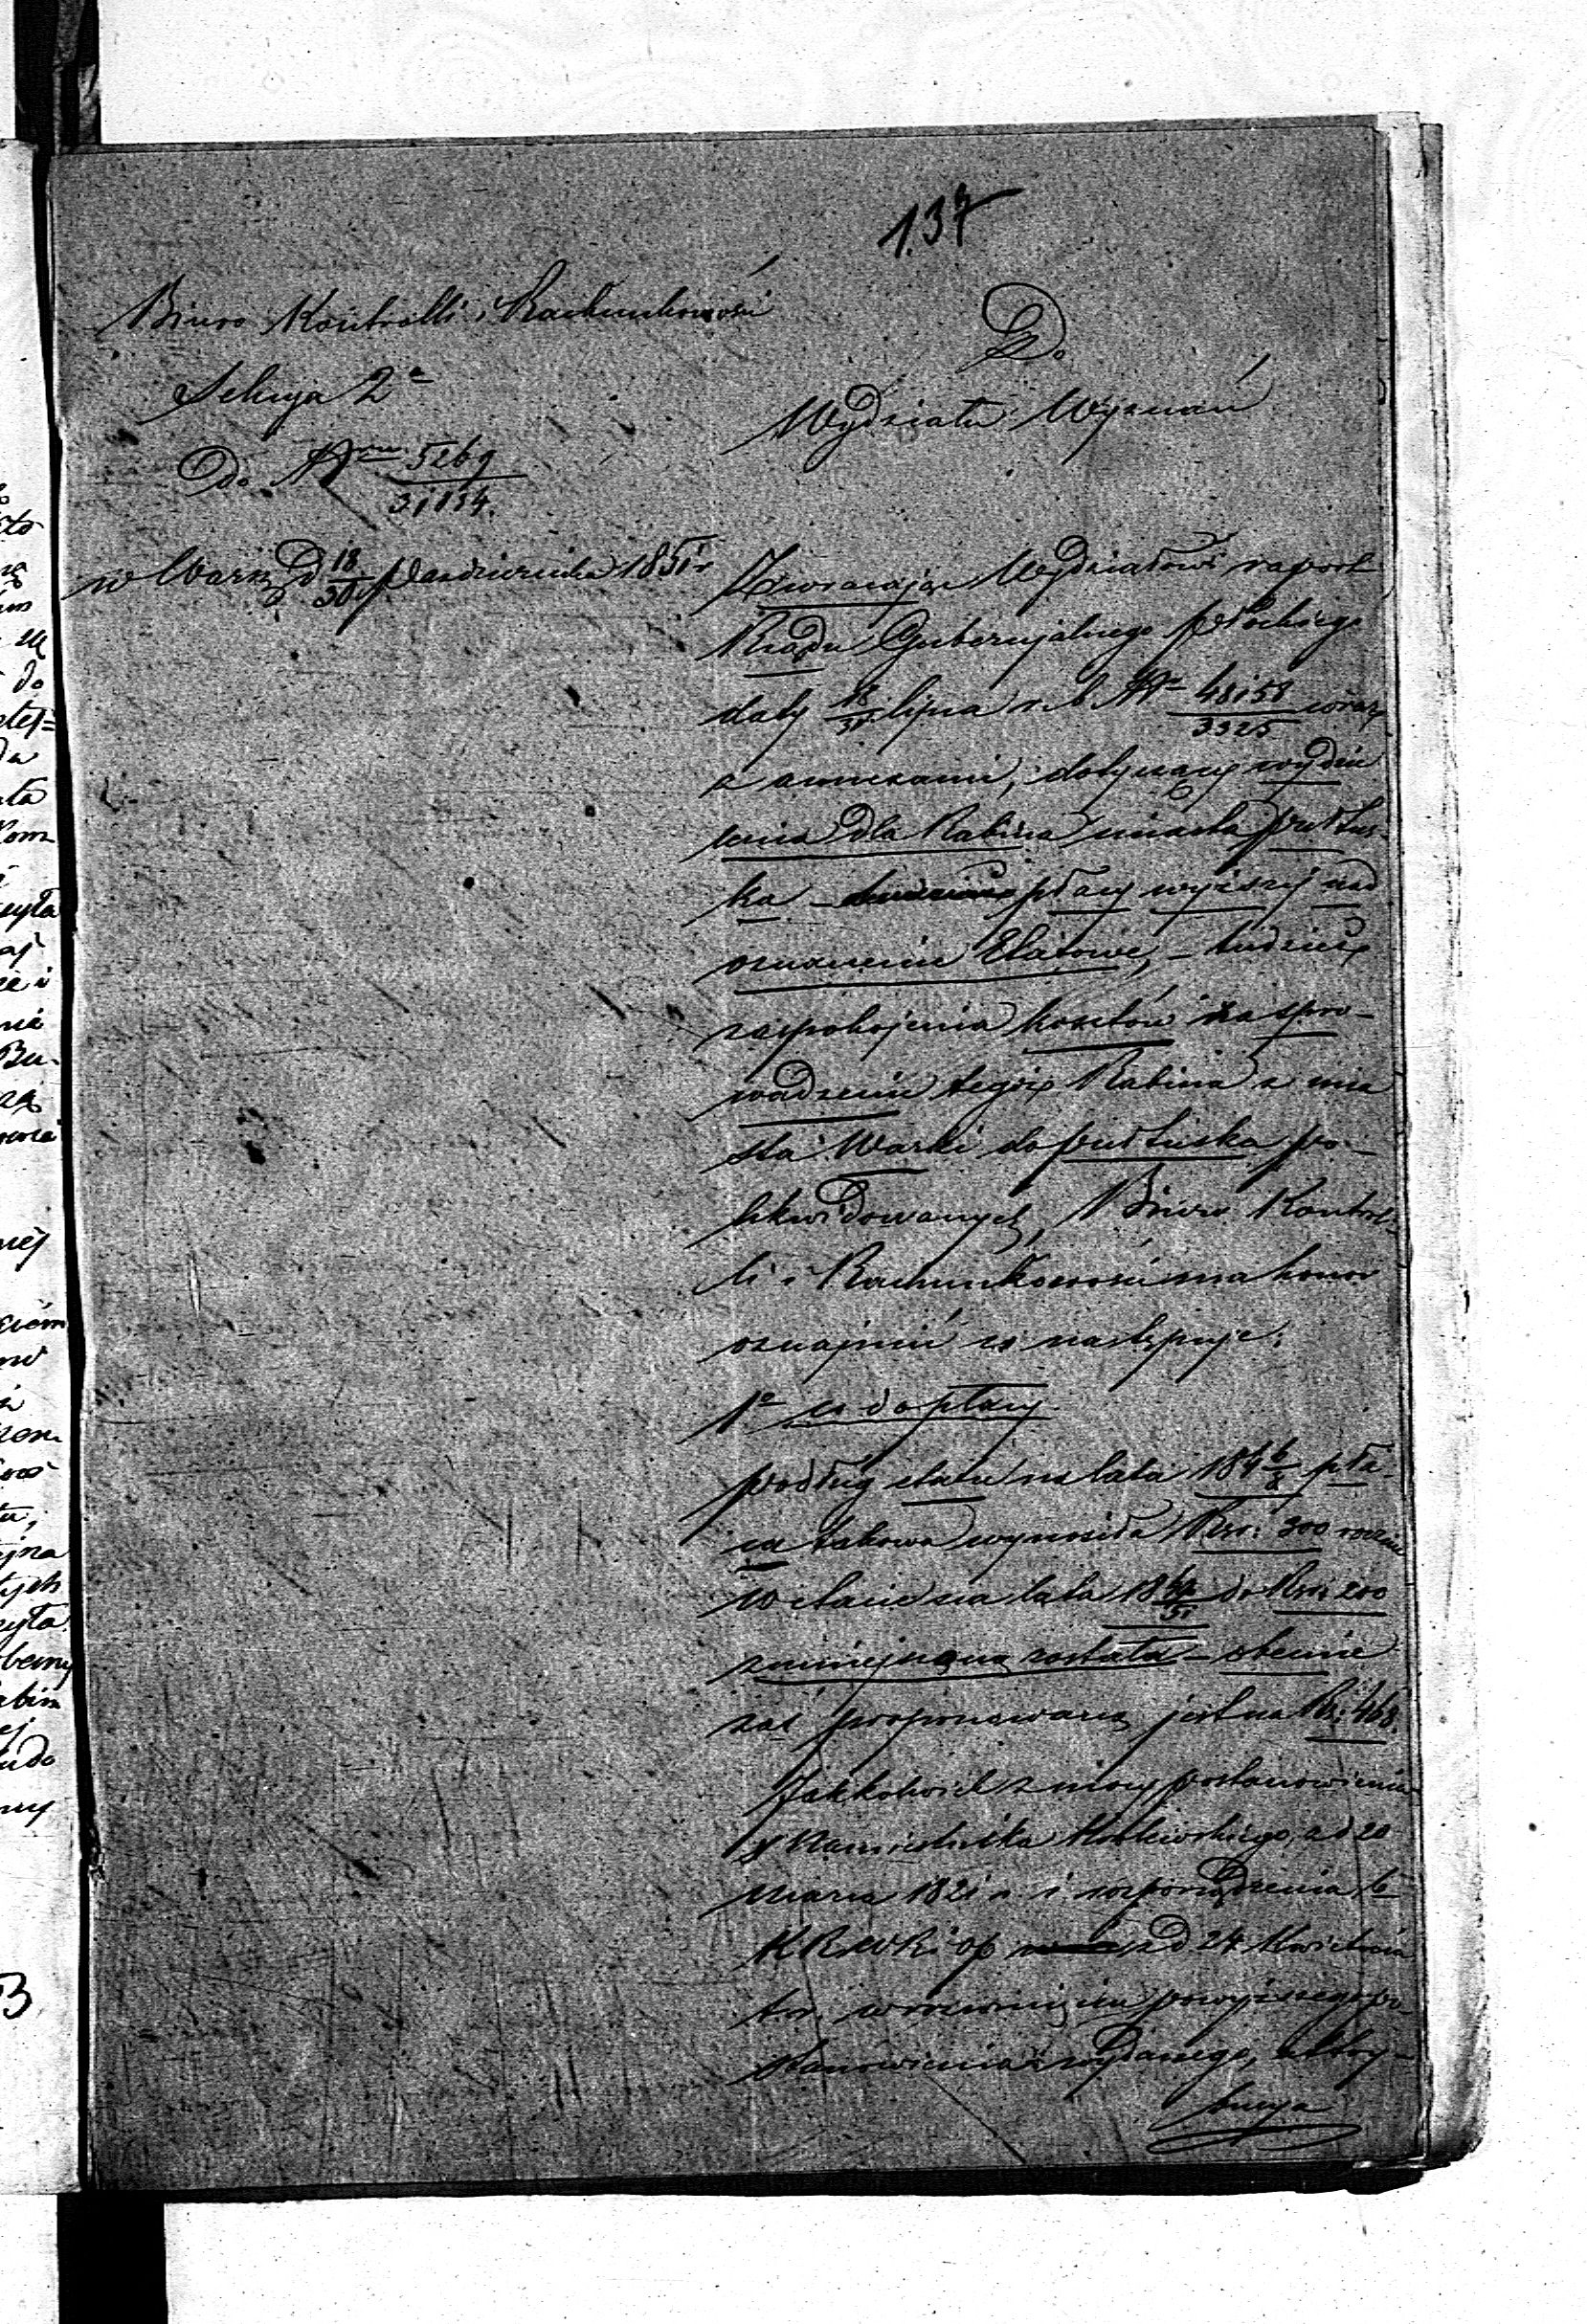 137
Biuro Kontrolli i Rachunkowości
Sekcya 2a
Do Nru 5269/31134.
w Warsz. d 18/30 Października 1851 r
Do
Wydziału Wyznań
Zwracając Wydziałowi raport
Rządu Gubernjalnego Płockiego
daty 18/30 lipca r. b. Nr 48158/3325 wraz
z annexami, dotyczący wyzna
czenia dla Rabina miasta Pułtus-
ka – płacy wyższej nad
oznaczenie Etatowe, – tudzież
zaspokojenia kosztów za spro-
wadzenie tegoż Rabina z mia
sta Warki do Pułtuska po-
likwidowanych, Biuro Kontrol-
li i Rachunkowości ma honor
oznajmić co następuje:
1o co do płacy.
podług etatu na lata 1846/8 pła-
ca takowa wynosiła Rsr: 300 rocznie
w etacie na lata 1849/51 do Rsr: 200
zmniejszoną została – obecnie
zaś proponowaną jest na Rs: 468.
Jakkolwiek z mocy postanowienia
X Namiestnika Królewskiego z d 20
Marca 1821 r. i rozporządzenia b
K R W R i O P z d 24 Kwietnia
t. r. w rozwinięciu powyższego po-
stanowienia wydanego, attry-
bucya